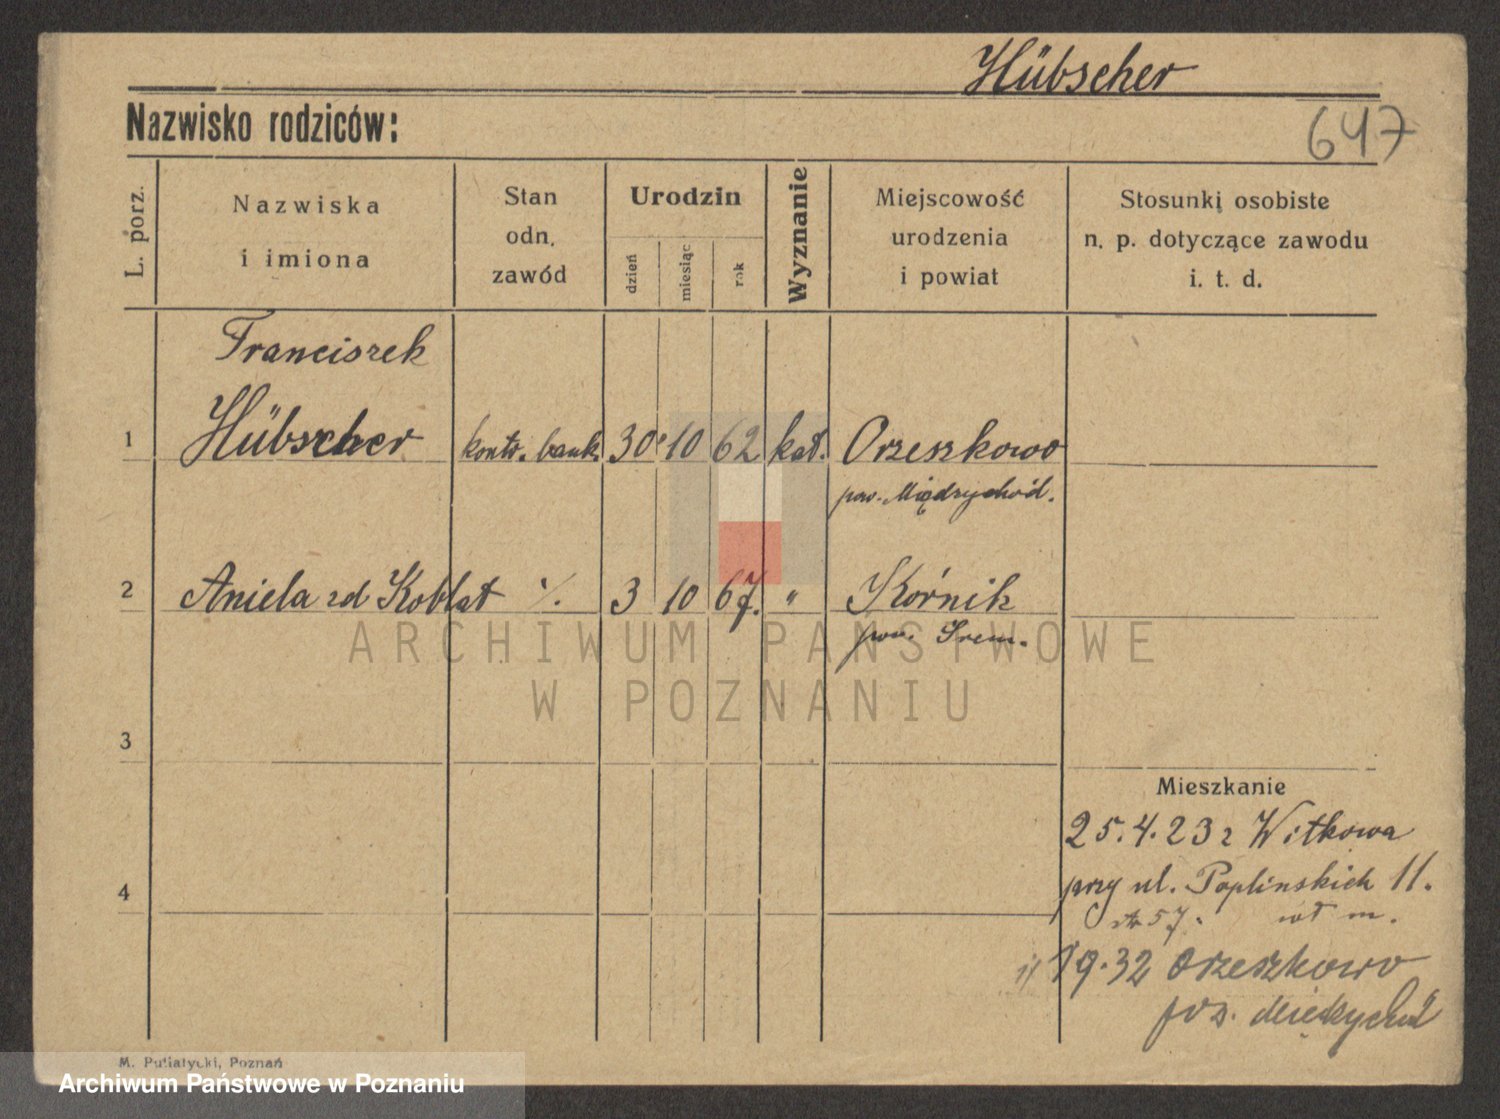 Hübscher
Nazwisko rodziców:
647
L. porz.
Nazwiska
i imiona
Stan
odn.
zawód
Urodzin
dzień
miesiąc
rok
Wyznanie
Miejscowość
urodzenia
i powiat
Stosunki osobiste
n. p. dotyczące zawodu
i. t. d.
Franciszek
1 Hübscher kontr. bank. 30 10 62 kat. Orzeszkowo
pow. Międzychód.
2 Aniela zd Koblat ·/. 3 10 67. " Kórnik
pow. Śrem.
ARCHIWUM PAŃSTWOWE
W POZNANIU
3
Mieszkanie
25.4.23 z Witkowa
przy ul. Poplinskich 11.
4
str 57. wł m.
19.32 Orzeszkowo
M. Putiatycki, Poznań
Archiwum Państwowe w Poznaniu